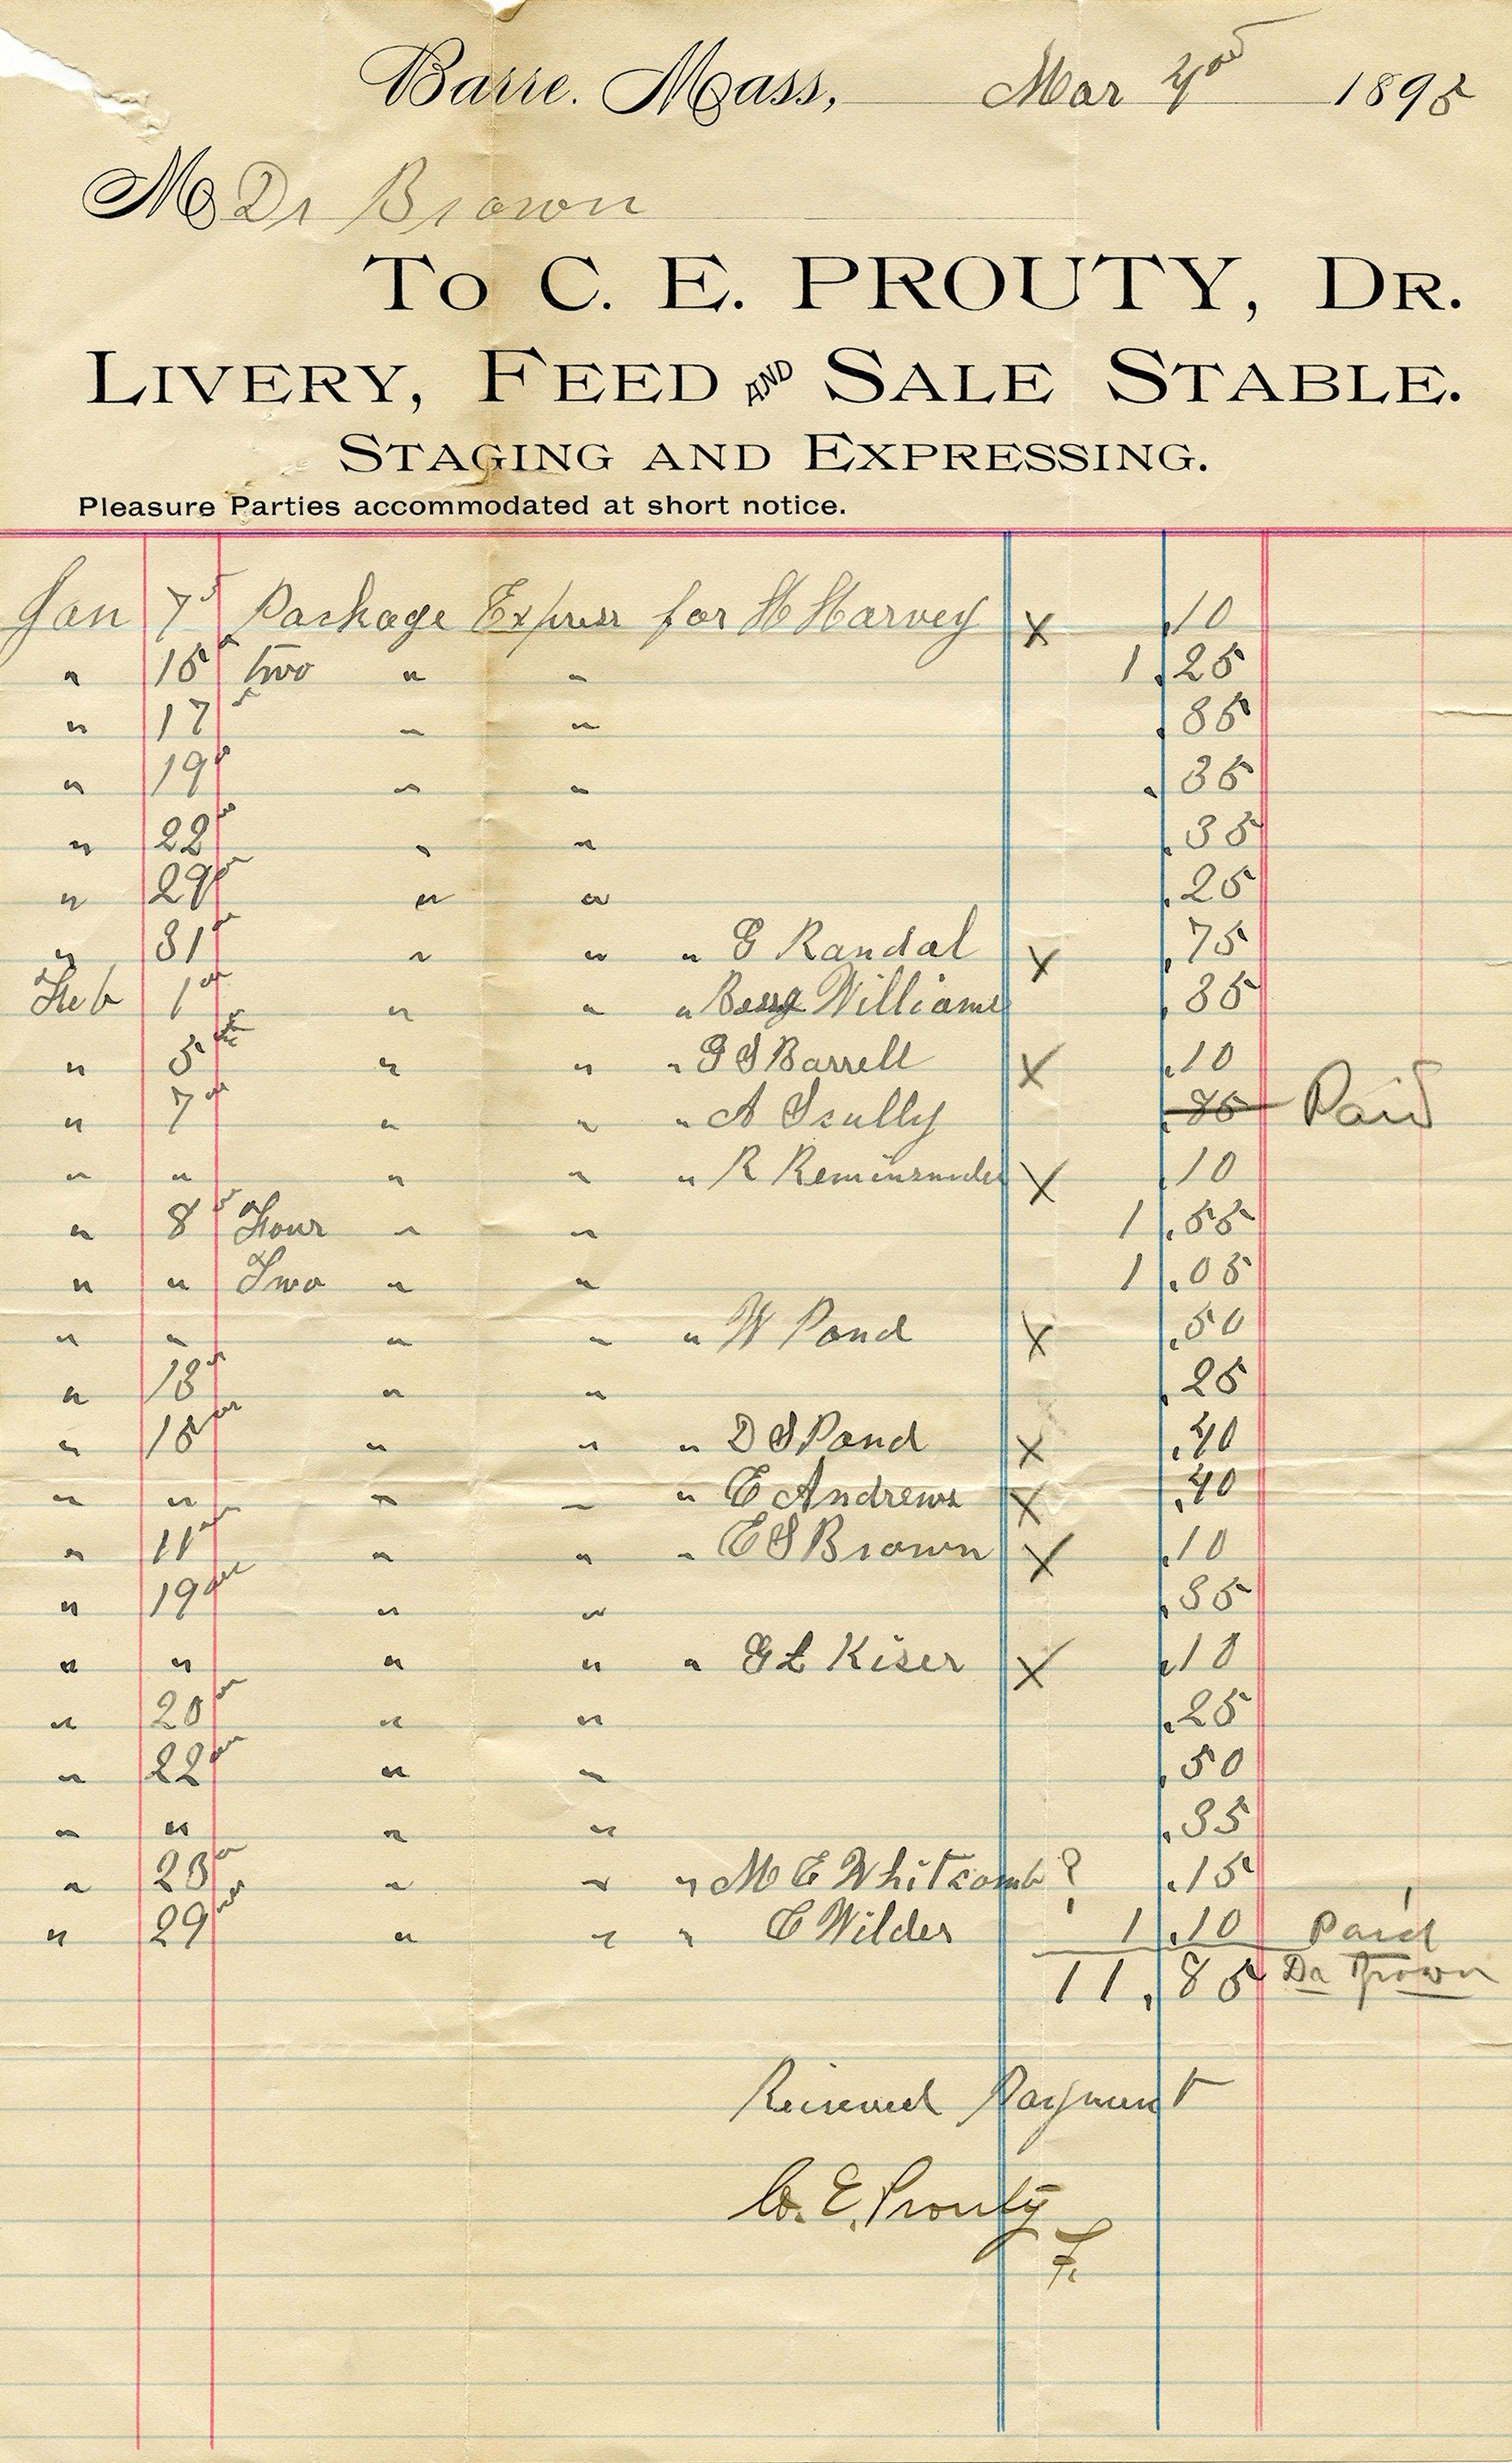 Barre. Mass, Mar 4th 1895
M Dr Brown
To C. E. PROUTY, DR.
LIVERY, FEED AND SALE STABLE.
STAGING AND EXPRESSING.
Pleasure Parties accommodated at short notice.
Jan 7 Package Express for H Harvey X .10
" 15 two " " 1.25
" 17 " " .35
" 19 " " .35
" 22 " " .35
" 29 " " .25
" 31 " " " G Randal X .75
Feb 1 " " " Williams .35
" 5th " " " G S Barrell X .10
" 7 " " " A Scully .35 Paid
" " " " " R X .10
" 8 Four " " 1.55
" " Two " " 1.05
" " " " " W Pond X .50
" 13 " " .25
" 15 " " " D S Pond X .40
" " " " " E Andrews X .40
" 11 " " " E S Brown X .10
" 19 " " .35
" " " " " G L Kiser X .10
" 20 " " .25
" 22 " " .50
" " " " .35
" 23 " " " M E Whitcomb ? .15
" 29 " " " E Wilder 1.10 Paid
11.85 Dr Brown
Recieved Payment
C. E. Prouty
F.